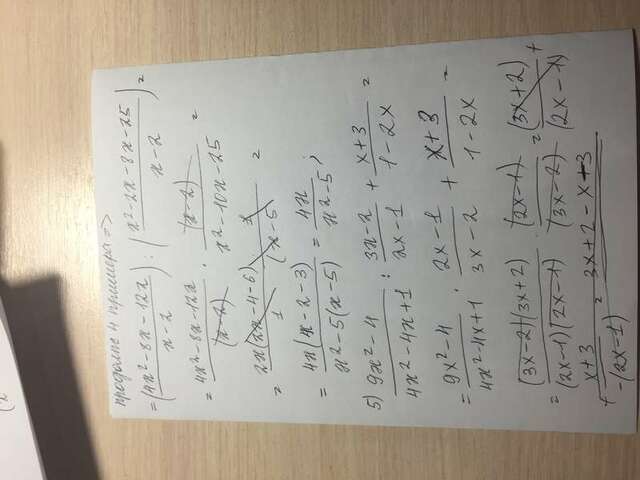 продолж 4 примера =>
= (4x² - 8x - 12x / x - 2) : (x² - 2x - 8x - 25 / x - 2) =
= 4x² - 8x - 12x / (x - 2) · (x - 2) / x² - 10x - 25 =
= 2x(2x - 4 - 6) / 1 · 1 / (x - 5 =
= 4x(x - 2 - 3) / x² - 5(x - 5) = 4x / x² - 5 ;
5) 9x² - 4 / 4x² - 4x + 1 : 3x - 2 / 2x - 1 + x + 3 / 1 - 2x =
= 9x² - 4 / 4x² - 4x + 1 · 2x - 1 / 3x - 2 + x + 3 / 1 - 2x =
= (3x - 2)(3x + 2) / (2x - 1)(2x - 1) · (2x - 1) / (3x - 2) = (3x + 2) / (2x - 1) +
+ x + 3 / -(2x - 1) = 3x + 2 - x + 3